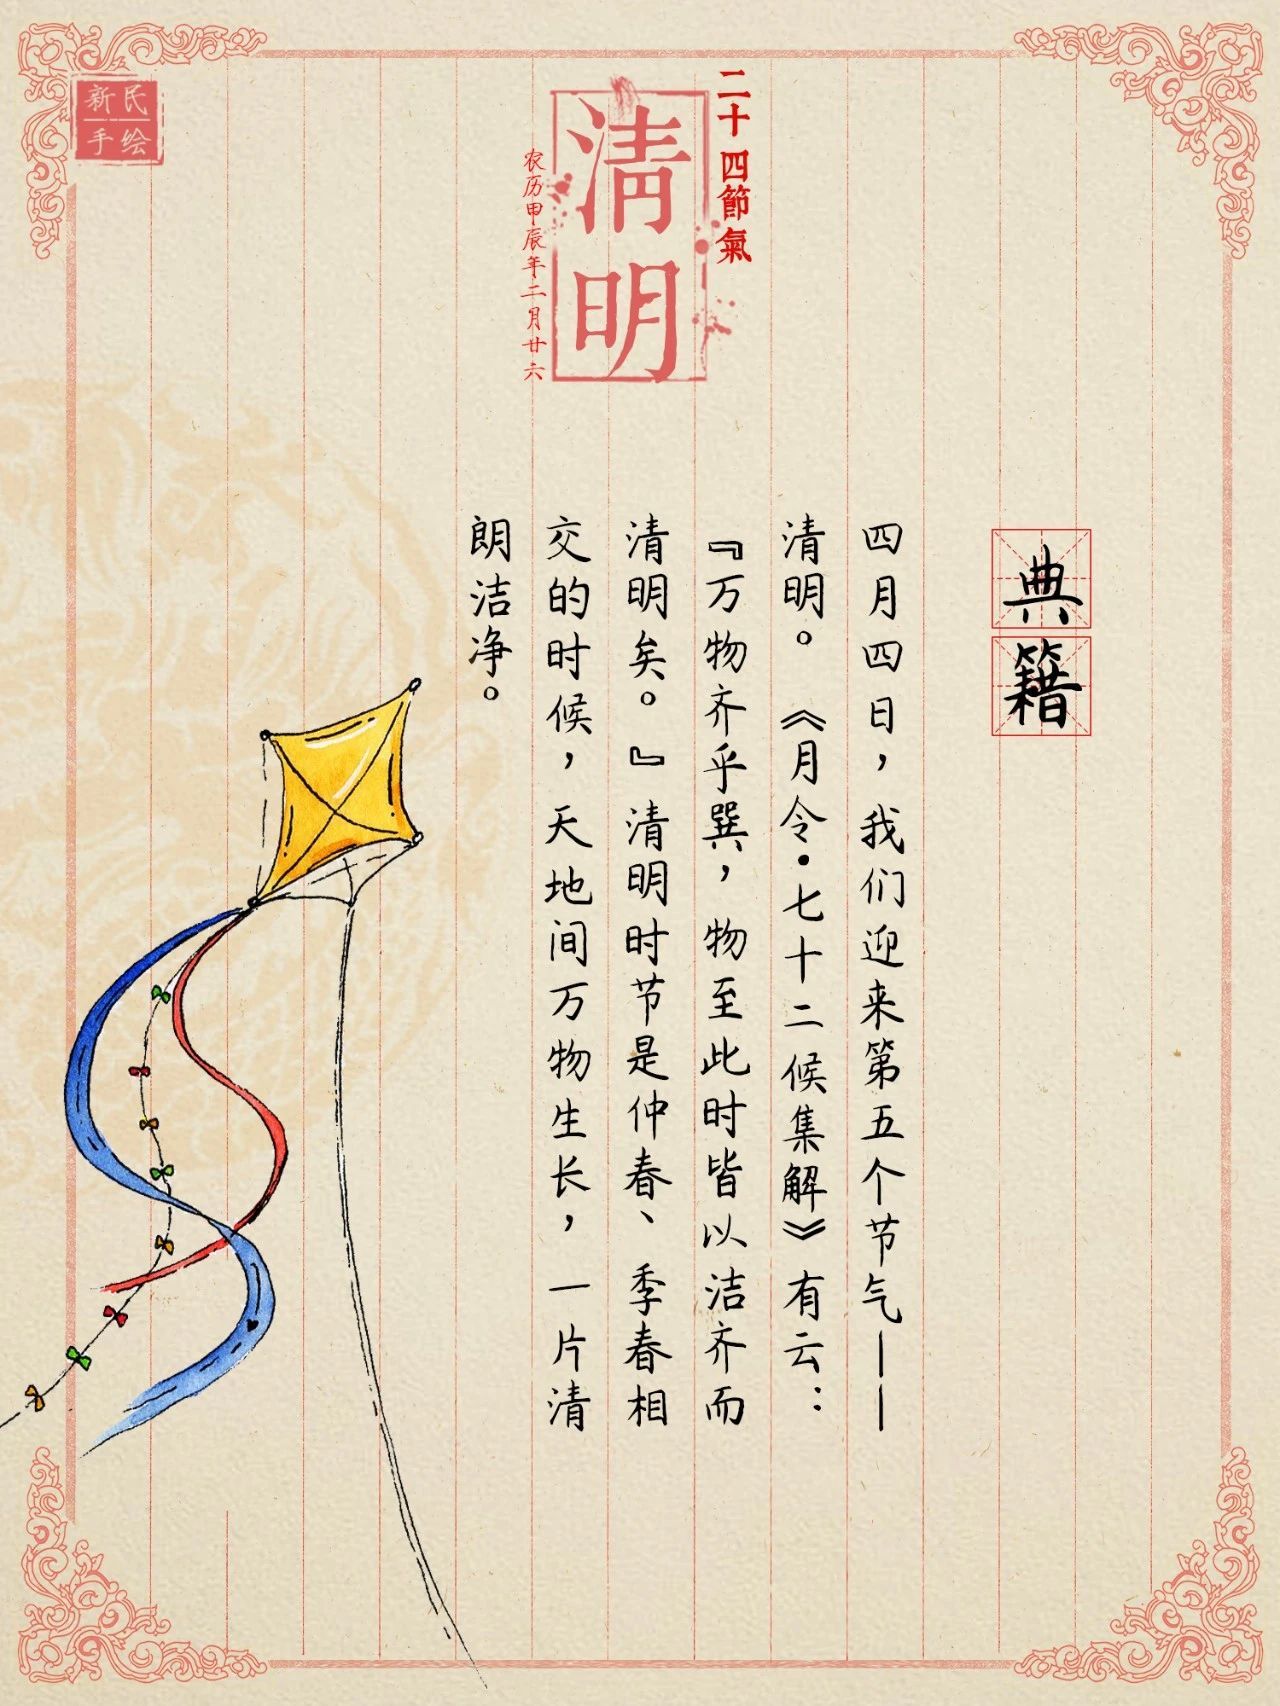 新民
手绘
二十四節氣
清明
农历甲辰年二月廿六
典籍
四月四日，我们迎来第五个节气——
清明。《月令·七十二候集解》有云：
『万物齐乎巽，物至此时皆以洁齐而
清明矣。』清明时节是仲春、季春相
交的时候，天地间万物生长，一片清
朗洁净。